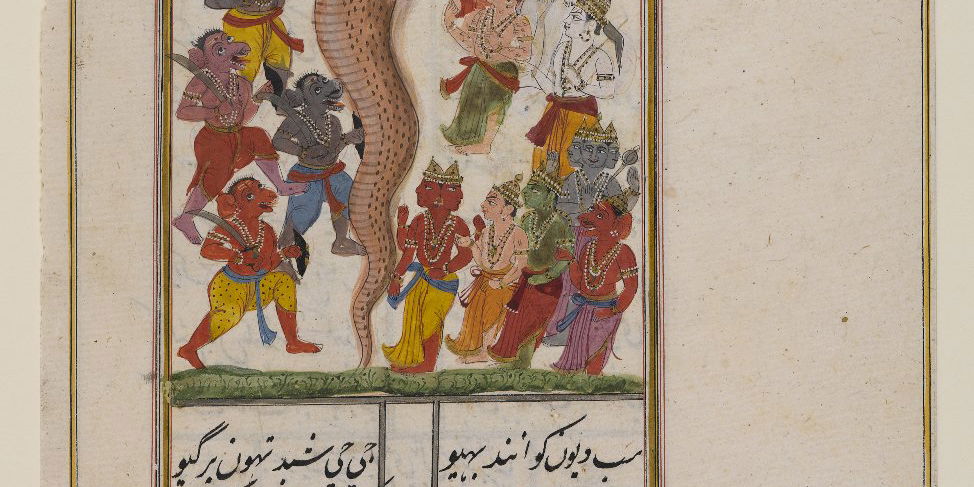 سب دیون کو انند بہیو
جی جی شبد تہون پر گیو